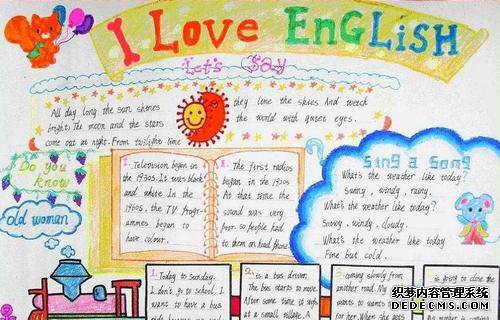 I Love English
Let's Say
All day long the sun shines
bright. The moon and the stars
come out at night. From twilight time
they line the skies And watch
the world with quiet eyes.
Do you
know
old woman
1. Television began in
the 1930s. It was black
and white. In the
1960s, the TV Progr-
ammes began to
have colour.
The first radios
began in the 1920s
At that time the
sound was very
poor. So people had
to them on head phone
Sing a Song
What's the weather like today?
Sunny, windy, rainy.
What's the weather like today?
Snowy, windy, cloudy.
What's the weather like today
Fine but cold.
1. Today to Sunday.
I don't go to school. I
want to have a bus
ride
2. is a bus driver.
The bus starts to move.
After some time it stops
at a small village. A
coming slowly from
another road. My
wants to
for her. When she gets
is going to close the
织梦内容管理系统
DEDECMS.COM